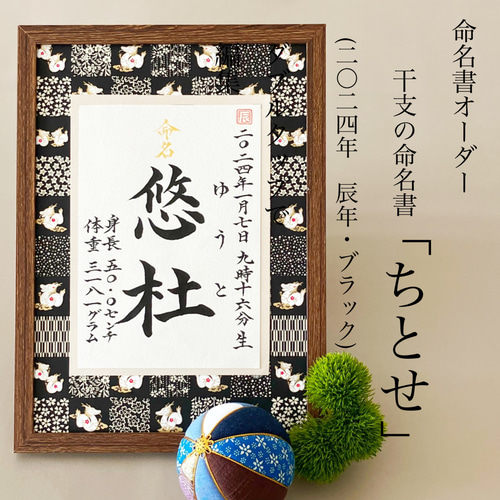 命名書オーダー
干支の命名書「ちとせ」
(二〇二四年 辰年・ブラック)
辰
二〇二四年一月七日 九時十六分生
命名
ゆうと
悠杜
身長 五〇・〇センチ
体重 三一八一グラム